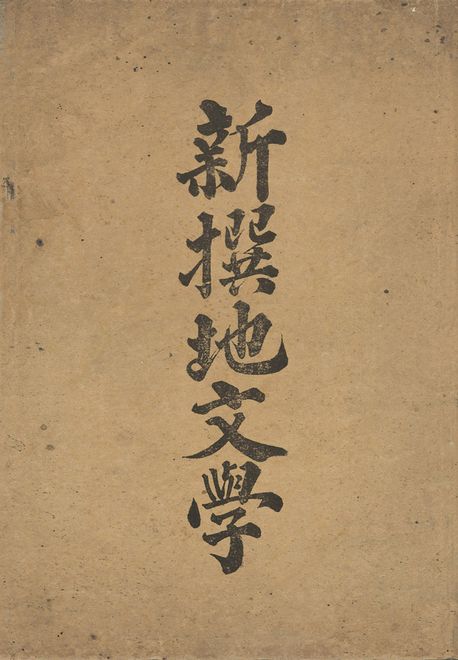 新撰地文學